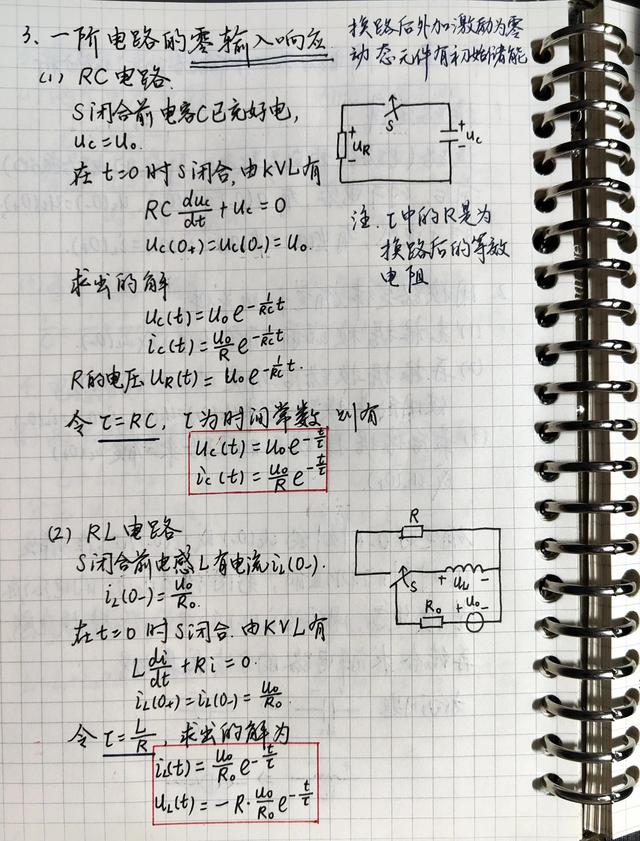 3、一阶电路的零输入响应
换路后外加激励为零
动态元件有初始储能
(1) RC电路.
S闭合前电容C已充好电,
uc=u₀.
在t=0时S闭合,由KVL有
RC duc/dt + uc = 0
uc(0+)=uc(0-)=u₀.
S
+
uR
-
+
uc
-
注. τ中的R是为
换路后的等效
电阻
求出的解
uc(t)=u₀e^(-1/RC t)
ic(t)=u₀/R e^(-1/RC t)
R的电压uR(t)=u₀e^(-1/RC t).
令τ=RC, τ为时间常数 则有
uc(t)=u₀e^(-t/τ)
ic(t)=u₀/R e^(-t/τ)
(2) RL电路
S闭合前电感L有电流iL(0-).
iL(0-)=u₀/R₀.
在t=0时S闭合.由KVL有
L di/dt + Ri = 0.
iL(0+)=iL(0-)=u₀/R₀
R
S
+ uL -
R₀
+ u₀ -
令τ=L/R, 求出的解为
iL(t)=u₀/R₀ e^(-t/τ)
uL(t)=-R·u₀/R₀ e^(-t/τ)